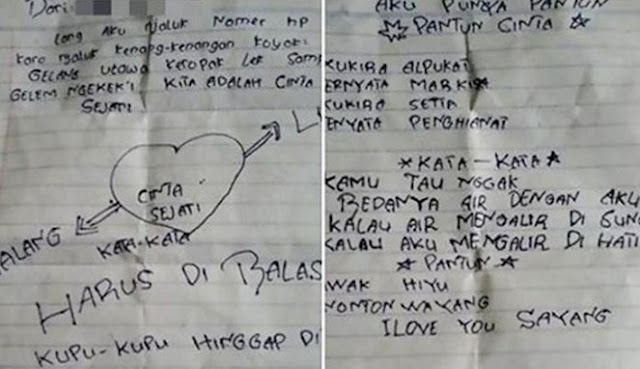 Dari:
Long Aku njaluk Nomer hp
karo njaluk kenang-kenangan koyoki
GELANG utowo ketopak Lek Sampe
GELEM NGEKEK'I KITA ADALAH CINTA
SEJATI
CINTA
SEJATI
ALANG
KATA-KATA
HARUS DI BALAS
KUPU-KUPU HINGGAP DI
AKU PUNYA PANTUN
PANTUN CINTA
KUKIRA ALPUKAT
ERNYATA MARKISA
KUKIRA SETIA
ENYATA PENGHIANAT
KATA-KATA
KAMU TAU NGGAK
BEDANYA AIR DENGAN AKU
KALAU AIR MENGALIR DI SUN
KALAU AKU MENGALIR DI HATI
PANTUN
WAK HIYU
NONTON WAYANG
I LOVE YOU SAYANG